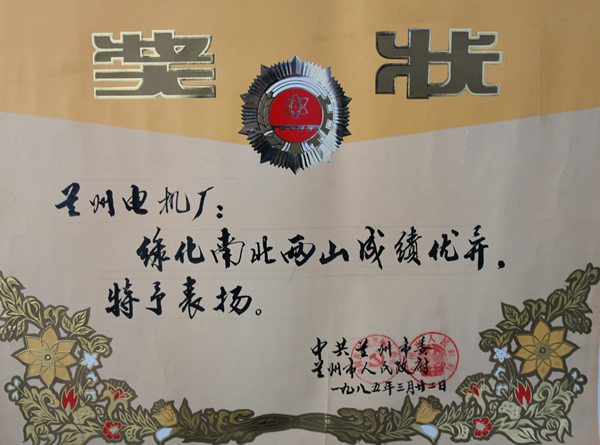 奖状
兰州电机厂：
绿化南北两山成绩优异，
特予表扬。
中共兰州市委
兰州市人民政府
一九八五年三月廿二日